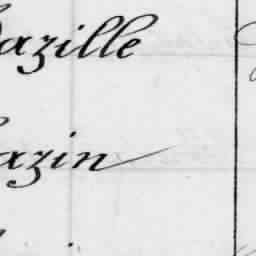 azille
azin